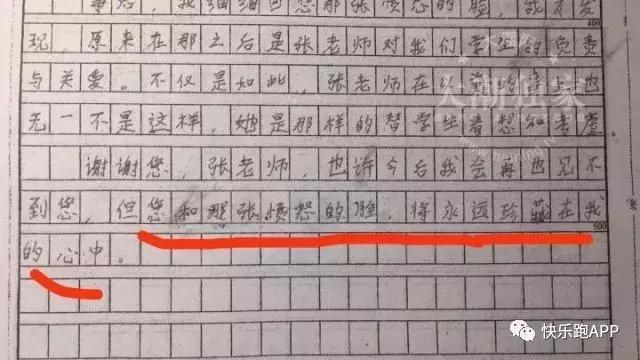 事后，我细细回想那张愤怒的脸，我才发
400
现，原来在那之后是张老师对我们学生的负责
与关爱。不仅是如此，张老师在以前的事上也
无一不是这样，她是那样的替学生着想和考虑
谢谢您，张老师，也许今后我会再也见不
到您，但您和那张愤怒的脸，将永远珍藏在我
500
的心中。
大潮独家
快乐跑APP